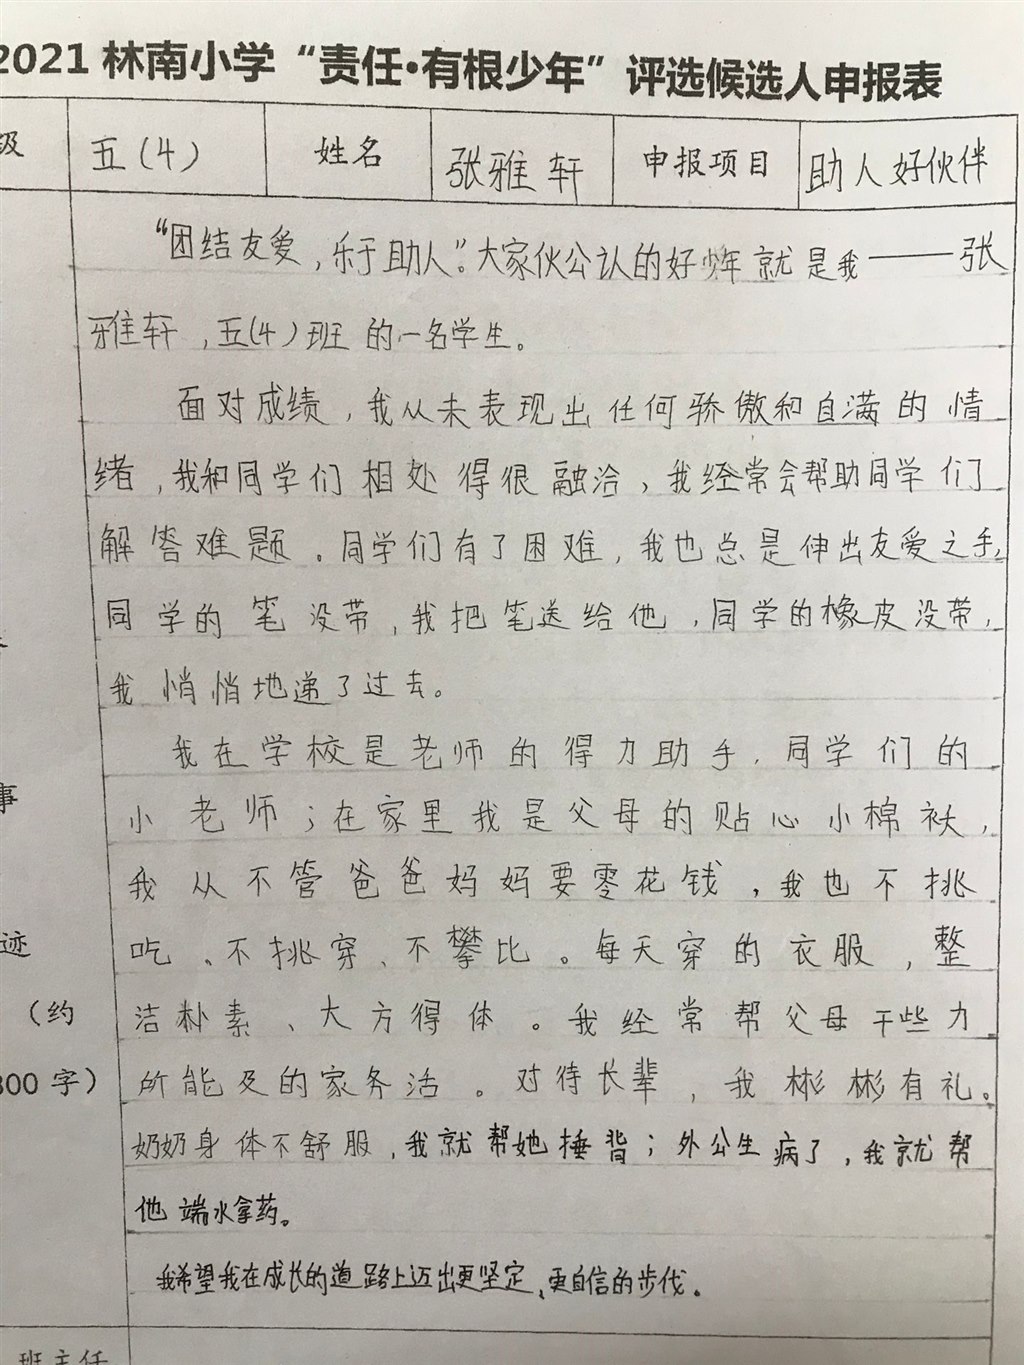 2021 林南小学“责任·有根少年”评选候选人申报表
级 五(4) 姓名 张雅轩 申报项目 助人好伙伴
“团结友爱,乐于助人”。大家伙公认的好少年就是我——张
雅轩,五(4)班的一名学生。
面对成绩,我从未表现出任何骄傲和自满的情
绪,我和同学们相处得很融洽、我经常会帮助同学们
解答难题。同学们有了困难,我也总是伸出友爱之手,
同学的笔没带,我把笔送给他,同学的橡皮没带,
我悄悄地递了过去。
我在学校是老师的得力助手,同学们的
小老师;在家里我是父母的贴心小棉袄,
我从不管爸爸妈妈要零花钱,我也不挑
吃、不挑穿、不攀比。每天穿的衣服,整
洁朴素、大方得体。我经常帮父母干些力
所能及的家务活。对待长辈,我彬彬有礼。
奶奶身体不舒服,我就帮她捶背;外公生病了,我就帮
他端水拿药。
我希望我在成长的道路上迈出更坚定、更自信的步伐。
事
迹
(约
300字)
班主任